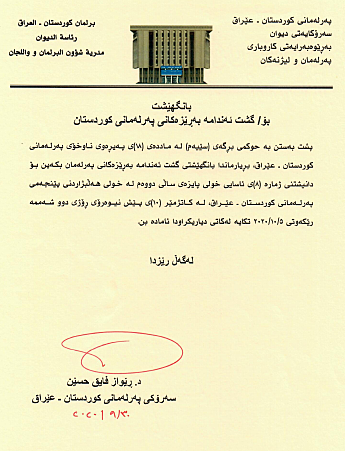 پەرلەمانی کوردستان - عێراق
سەرۆکایەتی دیوان
بەڕێوەبەرایەتی کاروباری
پەرلەمان و لیژنەکان
برلمان كوردستان - العراق
رئاسة الديوان
مديرية شؤون البرلمان واللجان
بانگهێشت
بۆ/ گشت ئەندامە بەڕێزەکانی پەرلەمانی کوردستان
پشت بەستن بە حوکمی بڕگەی (سێیەم) لە ماددەی (١٨)ی پەیڕەوی ناوخۆی پەرلەمانی
کوردستان - عێراق، بڕیارماندا بانگهێشتی گشت ئەندامە بەڕێزەکانی پەرلەمان بکەین بۆ
دانیشتنی ژمارە (٨)ی ئاسایی خولی پایزەی ساڵی دووەم لە خولی هەڵبژاردنی پێنجەمی
پەرلەمانی کوردستان - عێراق، لە کاتژمێر (١٠)ی پێش نیوەڕۆی ڕۆژی دوو شەممە
رێکەوتی ٢٠٢٠/١٠/٥ تکایە لەگاتی دیاریکراودا ئامادە بن.
لەگەڵ رێزدا
د. رێواز فایق حسێن
سەرۆکی پەرلەمانی کوردستان - عێراق
٢٠٢٠/٩/٣٠